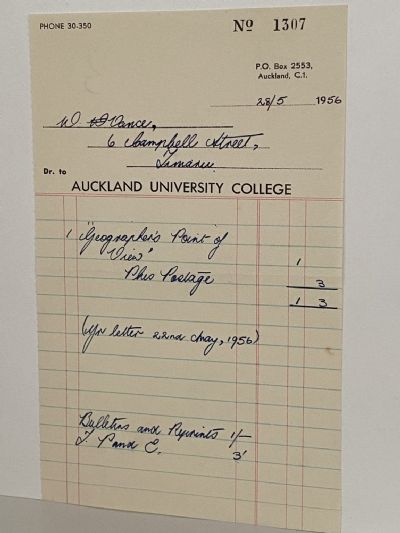 PHONE 30-350
Nº 1307
P.O. Box 2553,
Auckland, C.1.
28/5 1956
W Vance,
6 Campbell Street,
Timaru
Dr. to
AUCKLAND UNIVERSITY COLLEGE
1 "Geographer's Point of
View" 1
Plus Postage 3
1 3
(Yr letter 22nd May, 1956)
Bulletins and Reprints 1/-
T. P and E. 3'